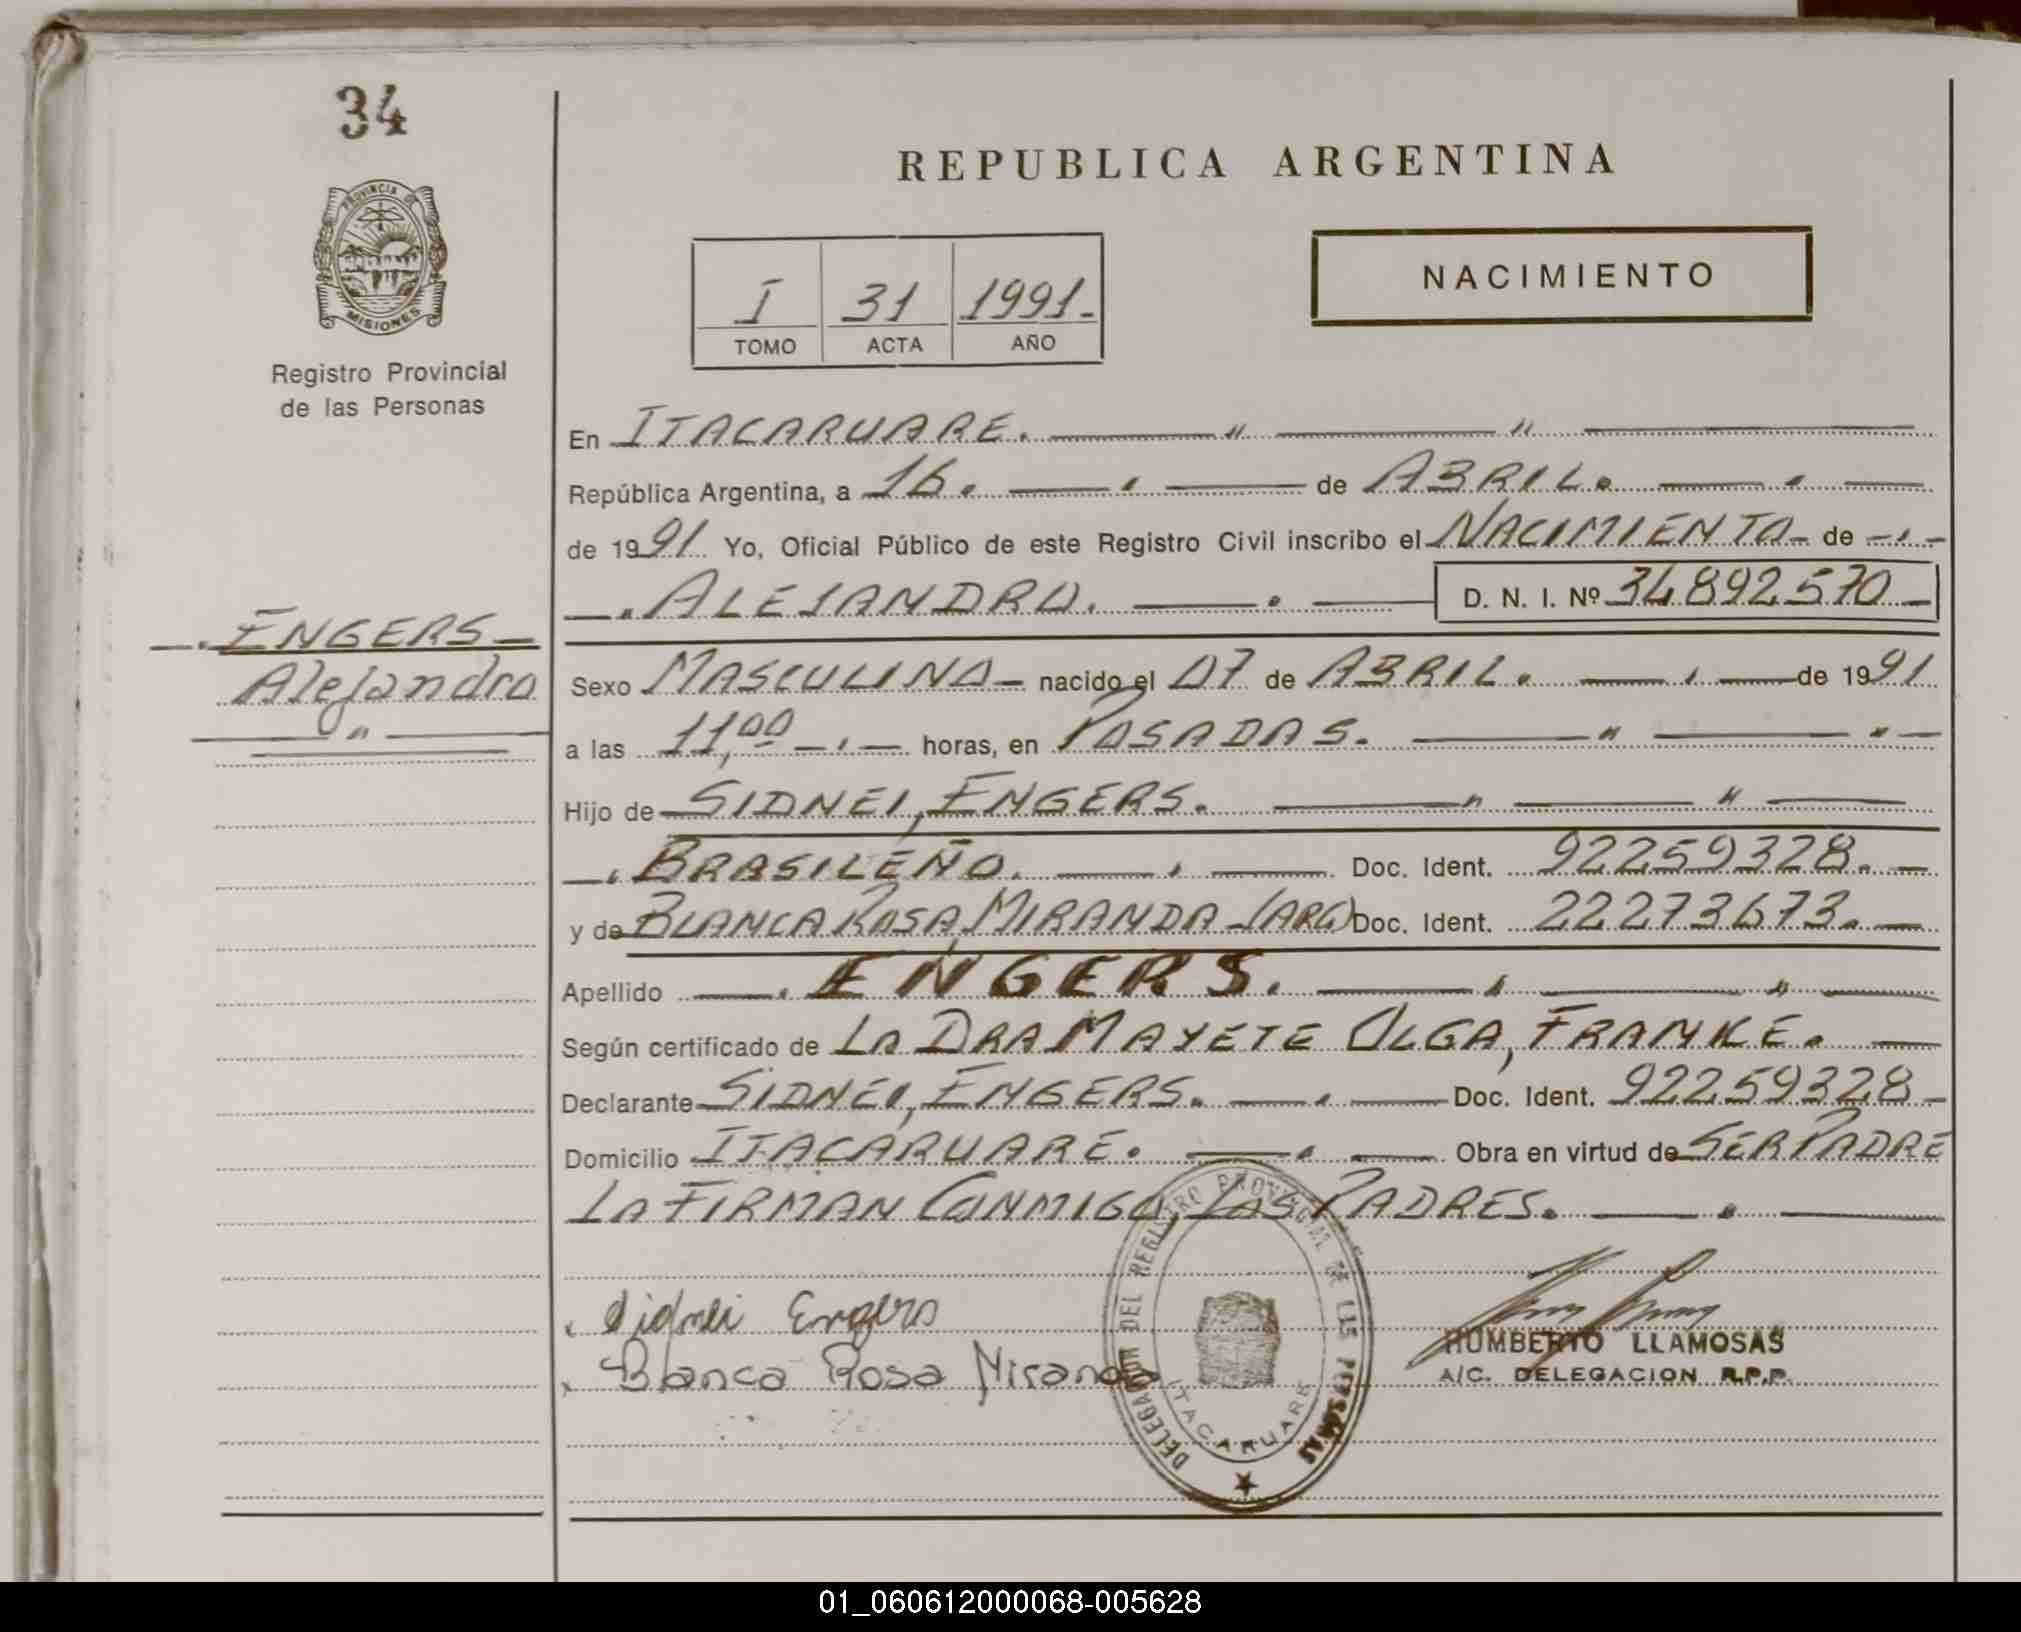 34
PROVINCIA DE
MISIONES
Registro Provincial
de las Personas
ENGERS
Alejandro
REPUBLICA ARGENTINA
I 31 1991
TOMO ACTA AÑO
NACIMIENTO
En ITACARUARE.
República Argentina, a 16. de ABRIL.
de 1991 Yo, Oficial Público de este Registro Civil inscribo el NACIMIENTO de
ALEJANDRO. D. N. I. Nº 34892570
Sexo MASCULINO nacido el 07 de ABRIL. de 1991
a las 11,00 horas, en POSADAS.
Hijo de SIDNEI, ENGERS.
BRASILEÑO. Doc. Ident. 92259328.
y de BLANCA ROSA, MIRANDA (ARG) Doc. Ident. 22273673.
Apellido ENGERS.
Según certificado de LA DRA MAYETE OLGA, FRANKE.
Declarante SIDNEI, ENGERS. Doc. Ident. 92259328
Domicilio ITACARUARE. Obra en virtud de SER PADRE
LA FIRMAN CONMIGO, LOS PADRES.
Sidnei Engers
Blanca Rosa Miranda
DELEGACION DEL REGISTRO PROVINCIAL DE LAS PERSONAS
ITACARUARE
HUMBERTO LLAMOSAS
A/C. DELEGACION R.P.P.
01_060612000068-005628